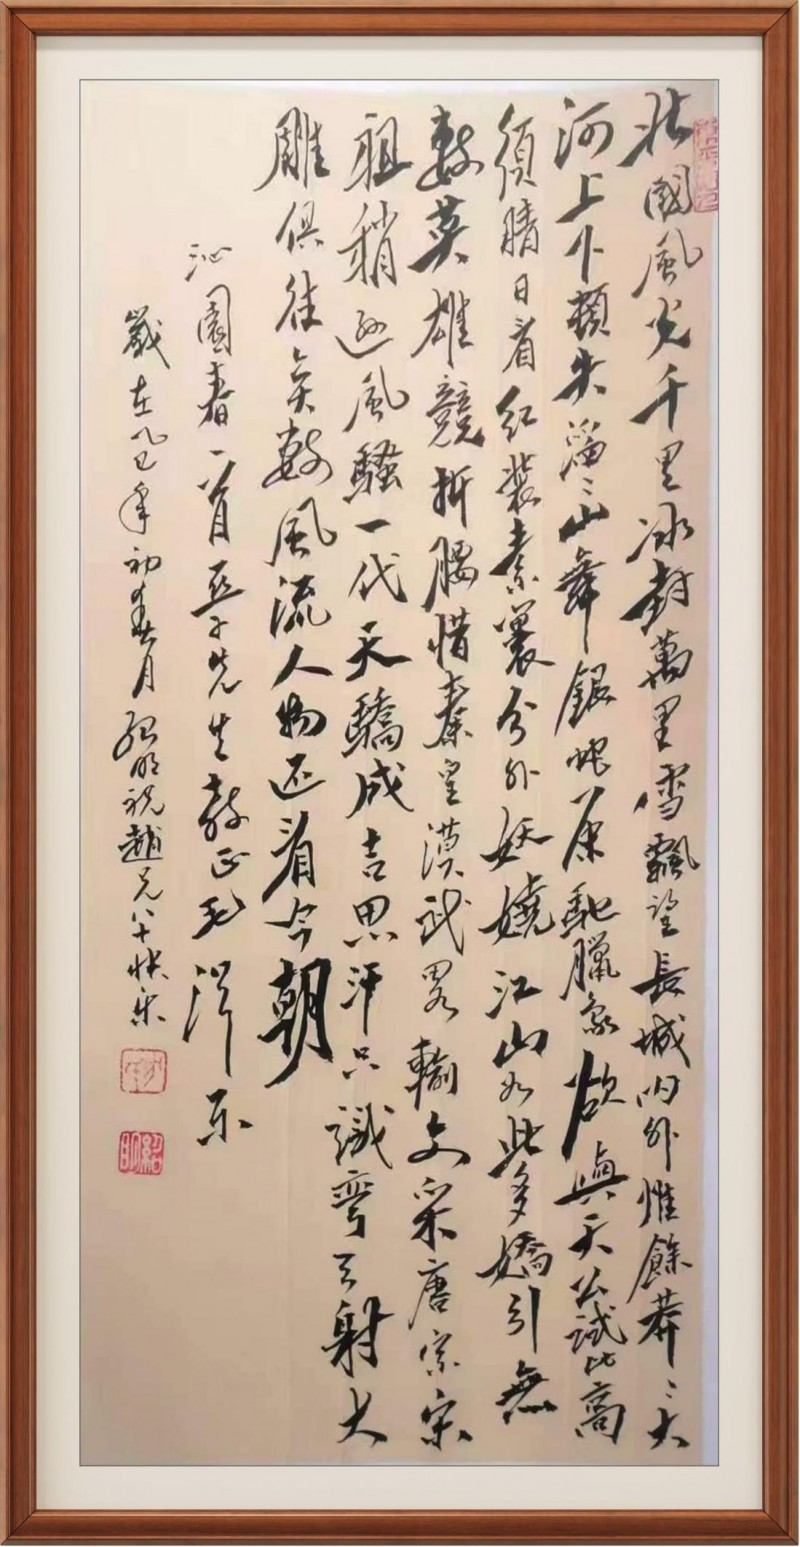 北國風光千里冰封萬里雪飄望長城内外惟餘莽〻大
河上下頓失滔〻山舞銀蛇原馳臘象欲與天公試比高
須晴日看红裝素裹分外妖嬈江山如此多嬌引無
數英雄競折腰惜秦皇漢武略輸文采唐宗宋
祖稍遜風騷一代天驕成吉思汗只識彎弓射大
雕俱往矣數風流人物还看今朝
沁園春一首亞子先生教正毛泽东
歲在乙巳年初春月紹明祝趙兄八十快乐
紹明